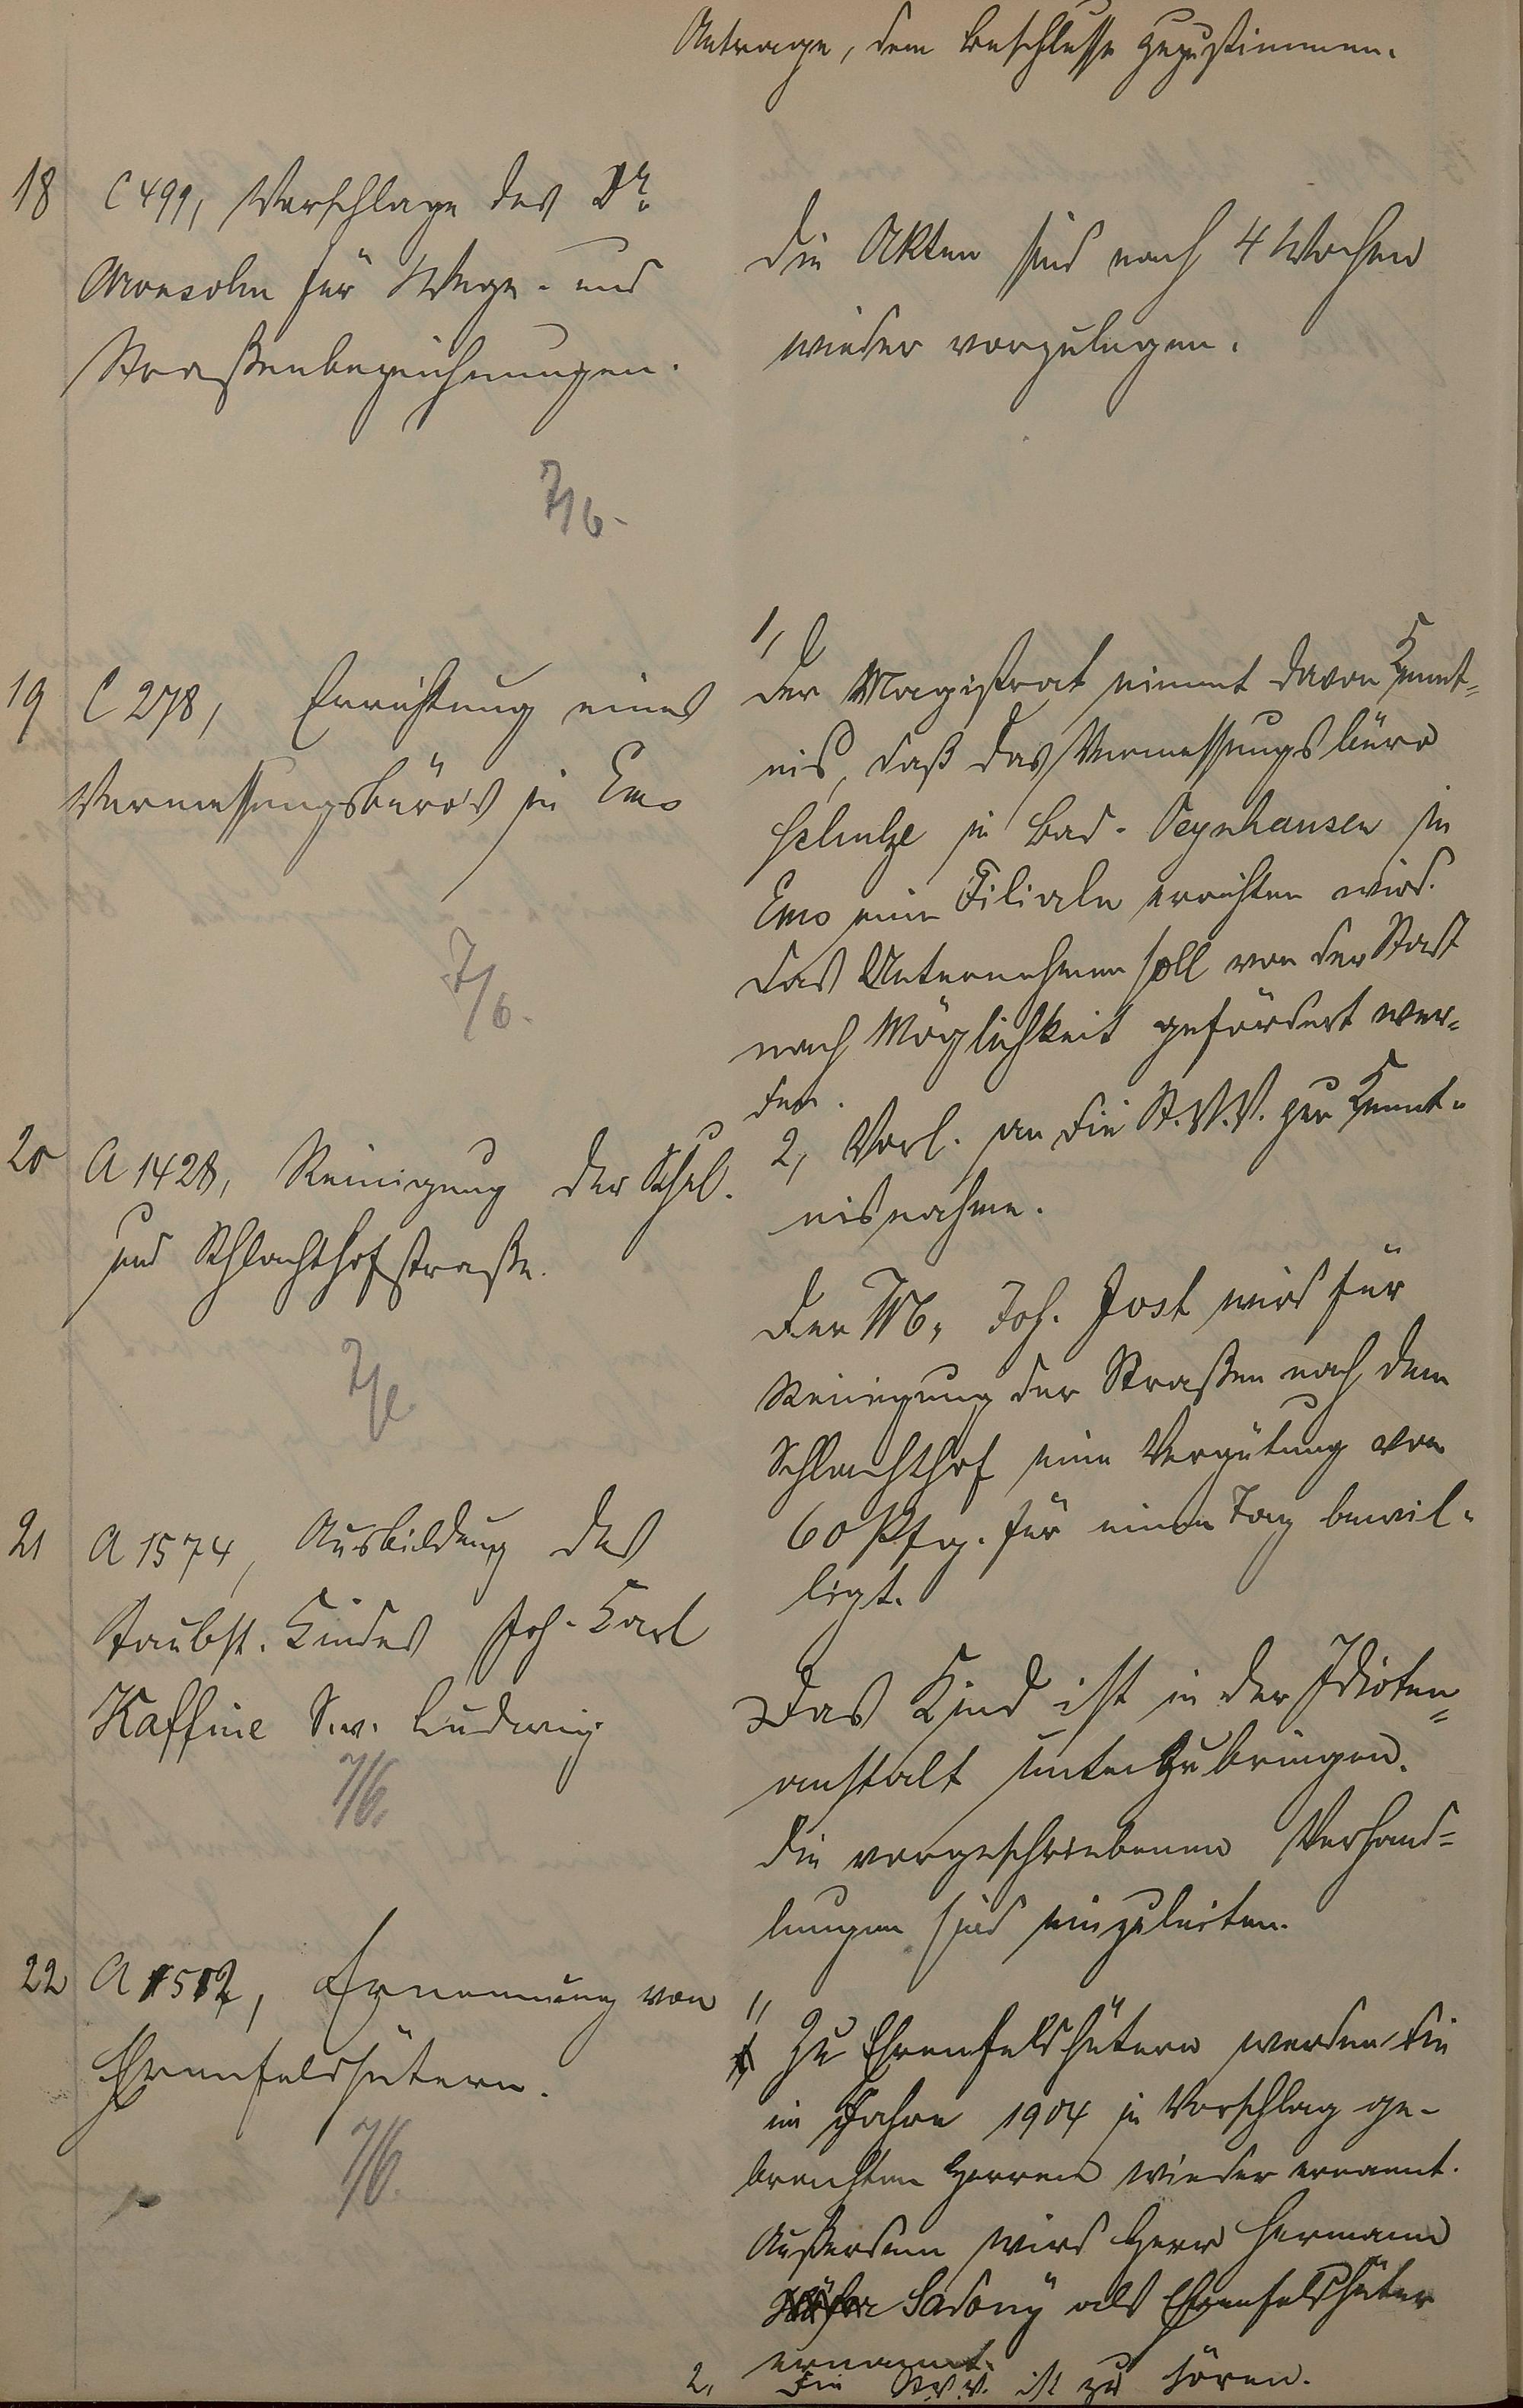 Antrage, dem Beschlusse zuzustimmen.
18 C 499, Vorschlage des Dr.
Aronsohn für Wege- und
Straßenbezeichnungen.
7/6.
Die Akten sind nach 4 Wochen
wieder vorzulegen.
19 C 278, Errichtung eines
Vermessungsbüro's in Ems
7/6.
1, Der Magistrat nimmt davon Kennt-
nis, daß das Vermessungsbüro
Schulze in Bad-Oeynhausen in
Ems eine Filiale errichten wird.
Das Unternehmen soll von der Stadt
nach Möglichkeit gefördert wer-
den.
2, Vorl. an die St.V.V. zur Kennt-
nisnahme.
20 A 1428, Reinigung der
und Schlachthofstraße.
7/6
Der Joh. Jost wird für
Reinigung der Straßen nach dem
Schlachthof eine Vergütung von
60 Pfg. für einen Tag bewil-
ligt.
21 A 1574, Ausbildung des
Taubst. Kindes Joh. Karl
Kaffine Sw. Ludwig
7/6.
Das Kind ist in der Idioten=
anstalt unterzubringen.
Die vorgeschriebenen Verhand=
lungen sind einzuleiten.
22 A 1512, Ernennung von
Ehrenfeldhütern.
7/6.
1, Zu Ehrenfeldhütern werden die
im Jahre 1904 in Vorschlag ge-
brachten Herren wieder ernannt.
Außerdem wird Herr Hermann
Sadony als Ehrenfeldhüter
ernannt.
2, Die St.V.V. ist zu hören.